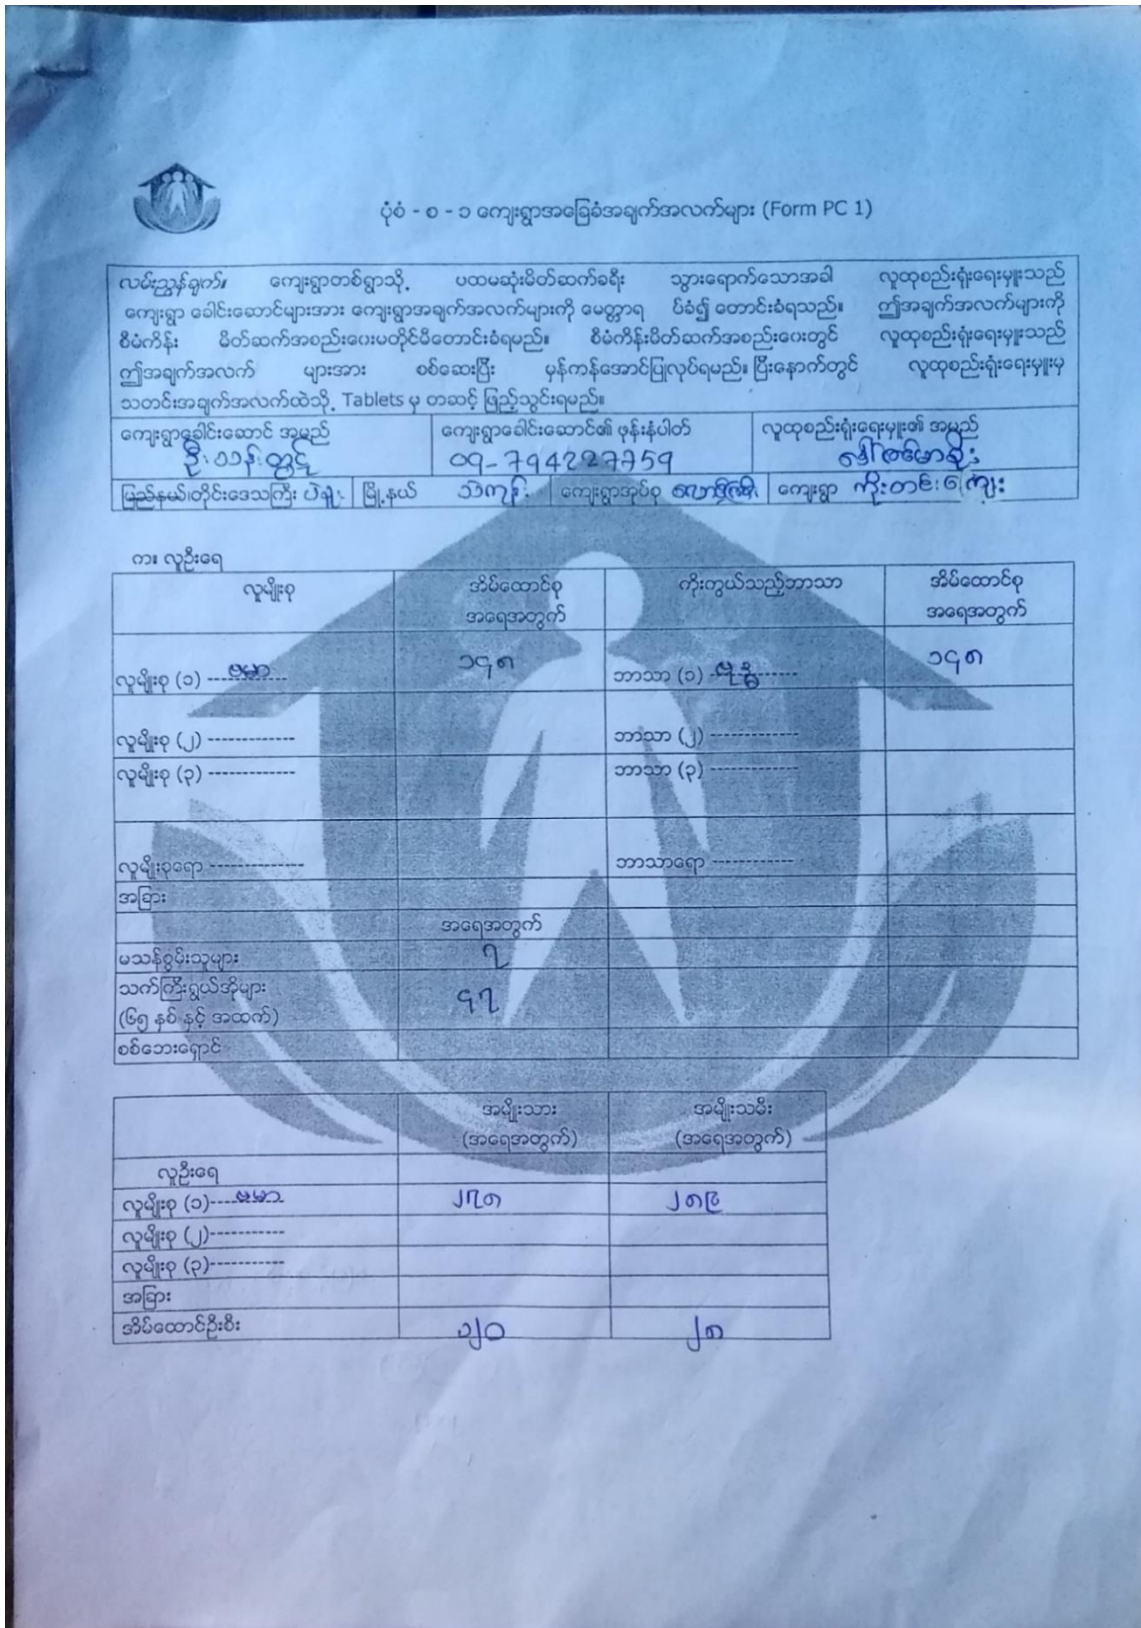 ပုံစံ - စ - ၁ ကျေးရွာအခြေခံအချက်အလက်များ (Form PC 1)
လမ်းညွှန်ချက်။ ကျေးရွာတစ်ရွာသို့ ပထမဆုံးမိတ်ဆက်ခရီး သွားရောက်သောအခါ လူထုစည်းရုံးရေးမှူးသည်
ကျေးရွာ ခေါင်းဆောင်များအား ကျေးရွာအချက်အလက်များကို မေတ္တာရ ပ်ခံ၍ တောင်းခံရသည်။ ဤအချက်အလက်များကို
စီမံကိန်း မိတ်ဆက်အစည်းဝေးမတိုင်မီတောင်းခံရမည်။ စီမံကိန်းမိတ်ဆက်အစည်းဝေးတွင် လူထုစည်းရုံးရေးမှူးသည်
ဤအချက်အလက် များအား စစ်ဆေးပြီး မှန်ကန်အောင်ပြုလုပ်ရမည်။ ပြီးနောက်တွင် လူထုစည်းရုံးရေးမှူးမှ
သတင်းအချက်အလက်ထဲသို့ Tablets မှ တဆင့် ဖြည့်သွင်းရမည်။
ကျေးရွာခေါင်းဆောင် အမည် ကျေးရွာခေါင်းဆောင်၏ ဖုန်းနံပါတ် လူထုစည်းရုံးရေးမှူး၏ အမည်
ဦးသန်း 09-794227759
ပြည်နယ်၊တိုင်းဒေသကြီး ပဲခူး မြို့နယ် သဲကုန်း ကျေးရွာအုပ်စု ကျေးရွာ
က။ လူဦးရေ
လူမျိုးစု အိမ်ထောင်စု အရေအတွက် ကိုးကွယ်သည့်ဘာသာ အိမ်ထောင်စု အရေအတွက်
လူမျိုးစု (၁) ---ဗမာ--- ၁၄၈ ဘာသာ (၁) --ဗုဒ္ဓ---- ၁၄၈
လူမျိုးစု (၂) ------------- ဘာသာ (၂) -------------
လူမျိုးစု (၃) ------------- ဘာသာ (၃) -------------
လူမျိုးစုရော -------------- ဘာသာရော ------------
အခြား
အရေအတွက်
မသန်စွမ်းသူများ ၃
သက်ကြီးရွယ်အိုများ
(၆၅ နှစ် နှင့် အထက်) ၄၇
စစ်ဘေးရှောင်
အမျိုးသား (အရေအတွက်) အမျိုးသမီး (အရေအတွက်)
လူဦးရေ
လူမျိုးစု (၁)----ဗမာ-- ၂၇၈ ၂၈၉
လူမျိုးစု (၂)-----------
လူမျိုးစု (၃)-----------
အခြား
အိမ်ထောင်ဦးစီး ၁၂၀ ၂၈